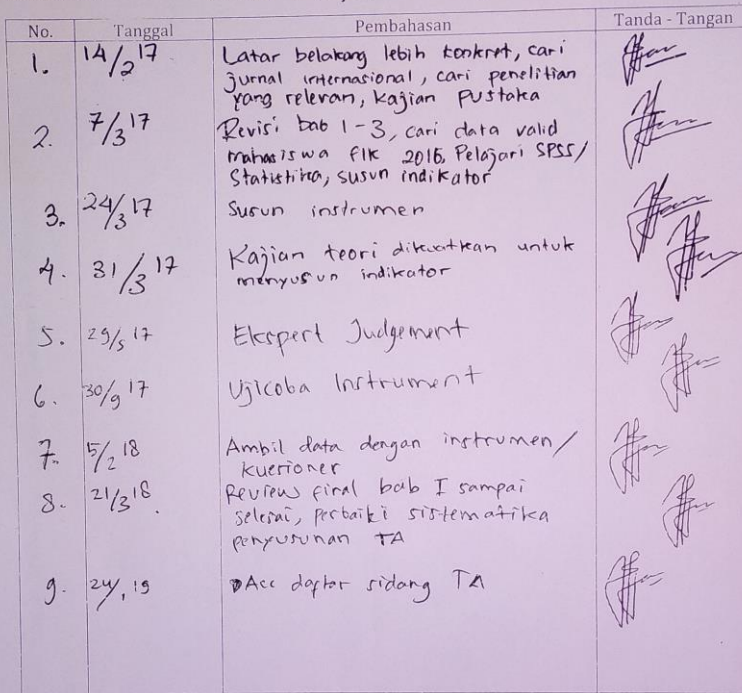 No. Tanggal Pembahasan Tanda - Tangan
1. 14/2 17 Latar belakang lebih konkret, cari
jurnal internasional, cari penelitian
yang relevan, Kajian Pustaka
2. 7/3 17 Revisi bab 1-3, cari data valid
mahasiswa FIK 2016, Pelajari SPSS/
Statistika, susun indikator
3. 24/3 17 Susun instrumen
4. 31/3 17 Kajian teori dikuatkan untuk
menyusun indikator
5. 29/5 17 Ekspert Judgement
6. 30/9 17 Ujicoba Instrument
7. 5/2 18 Ambil data dengan instrumen/
kuesioner
8. 21/3 18. Review final bab I sampai
selesai, perbaiki sistematika
penyusunan TA
9. 24/1 19 Acc daftar sidang TA